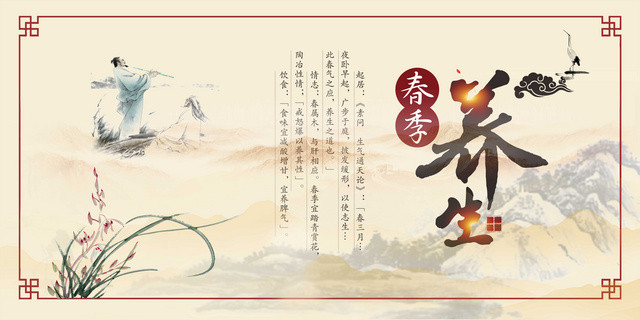 春季
养生
起居：《素问 生气通天论》：「春三月…
夜卧早起，广步于庭，披发缓形，以使志生…
此春气之应，养生之道也。」
情志：春属木，与肝相应。春季宜踏青赏花，
陶冶性情；「戒怒爆以养其性」。
饮食：「食味宜减酸增甘，宜养脾气」。